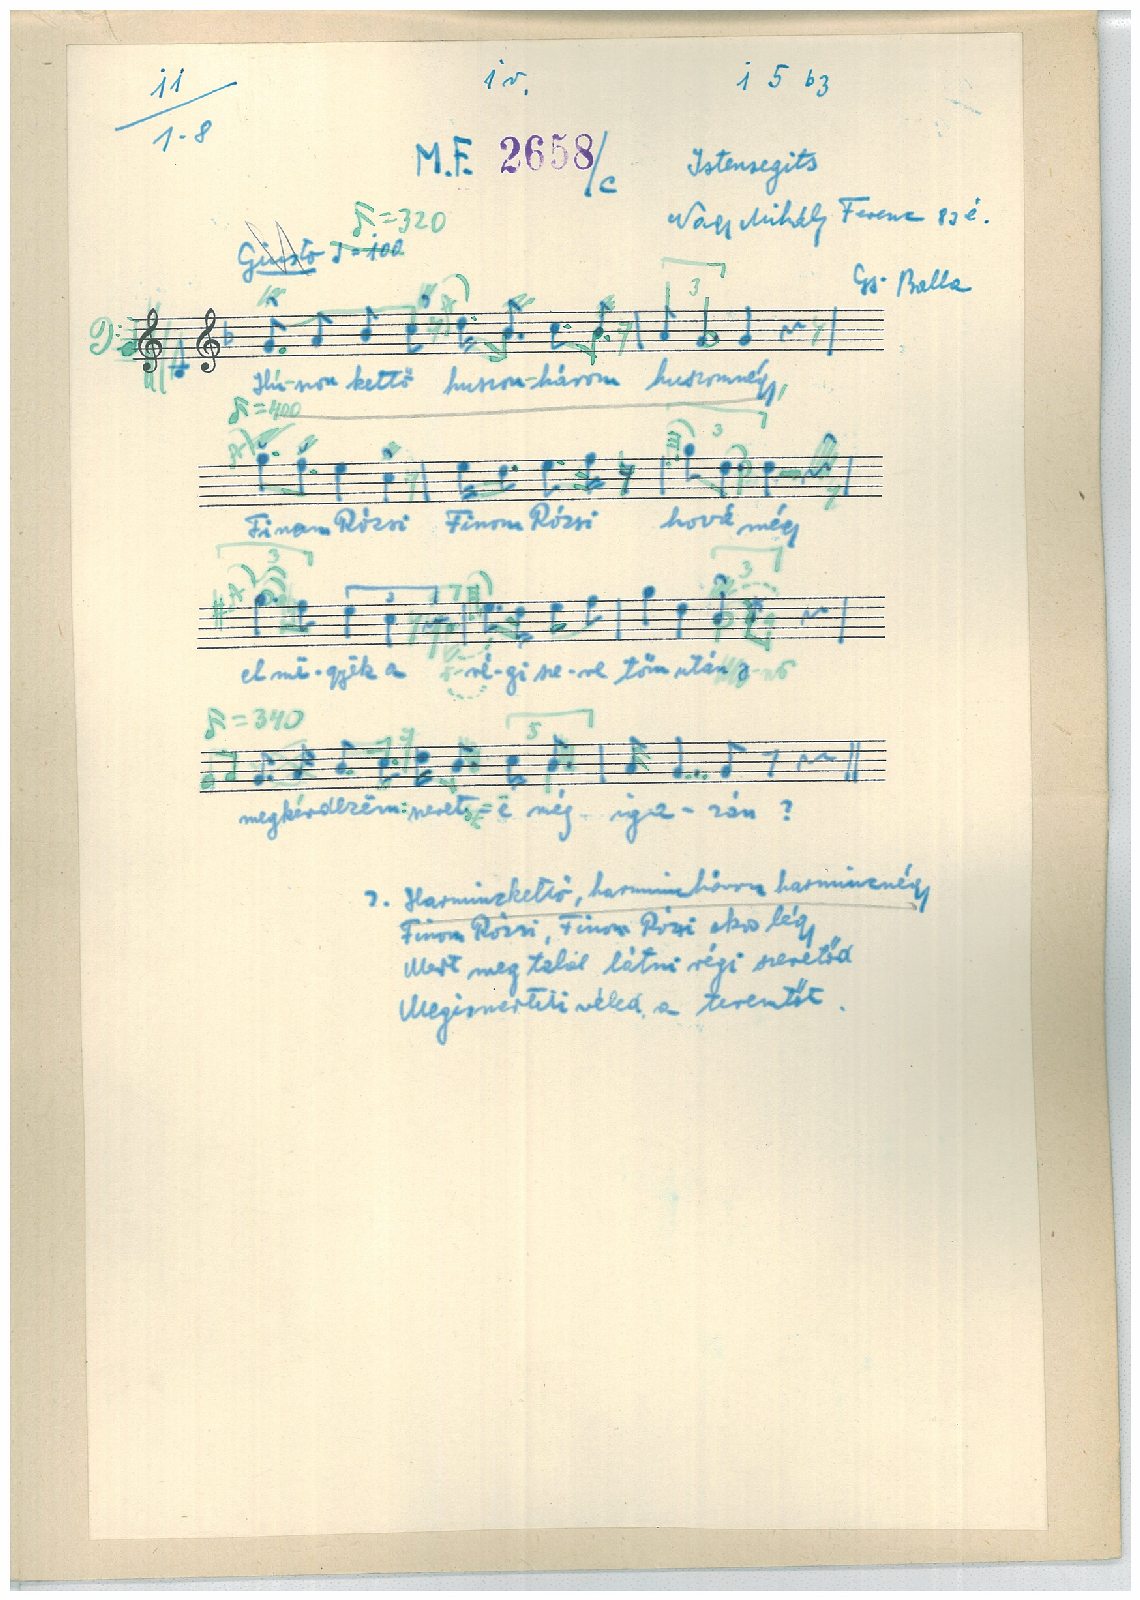 ii iv. i 5 b3
1-8
M.F. 2658/c Istensegits
Nagy Mihály Ferenc 83 é.
♪=320
Giusto ♩=100
Gy. Balla
Hú-szon kettő huszon-három huszonnégy,
♪=400
3
Finom Rózsi Finom Rózsi hová mégy
3 3 3
el mё-gyёk a régi sze-re tőm után
♪=340
5
megkérdezёm: szeret-ё még iga-zán ?
2. Harminckettő, harminchárom harmincnégy
Finom Rózsi, Finom Rózsi okos légy
Mert meg talál látni régi szeretőd
Megismerteti véled a teremtőt.